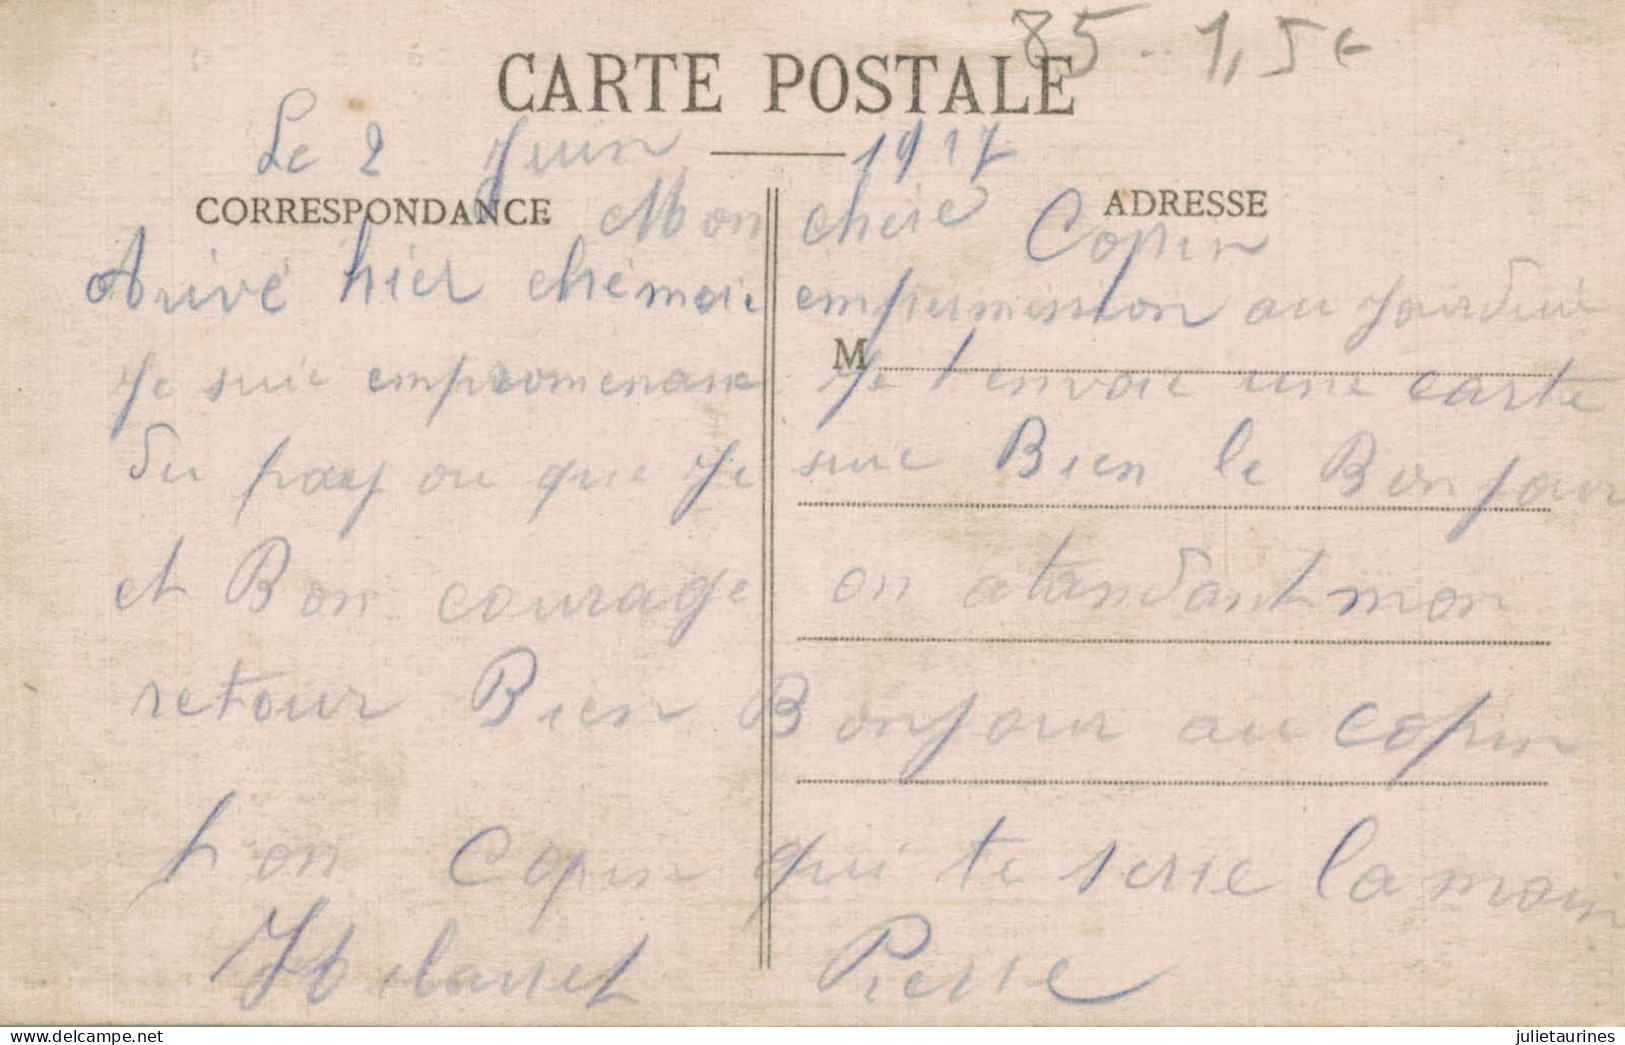 85 - 1,5 €
CARTE POSTALE
Le 2 Juin 1917
CORRESPONDANCE
ADRESSE
Mon chere Copin
Arivé hier chémoie empermission au jourduie
M
Je suie empromenane Je t'envoie une carte
du pay ou que Je suie Bien le Bonjour
et Bon courage on atandant mon
retour Bien Bonjour au copin
ton Copin qui te serre la main
Pierre
julietaurines